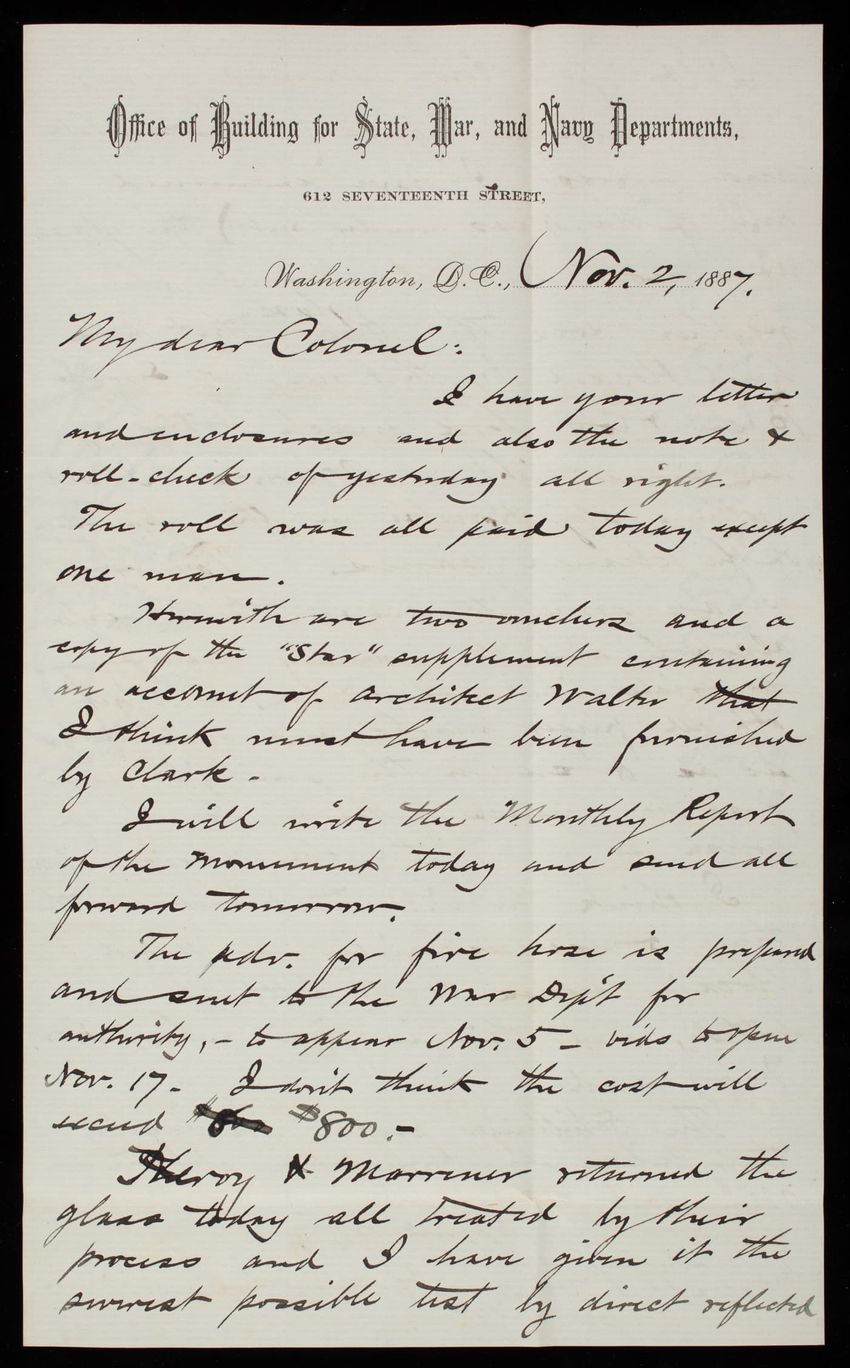 Office of Building for State, War, and Navy Departments,
612 SEVENTEENTH STREET,
Washington, D. C., Nov. 2, 1887.
My dear Colonel:
I have your letter
and enclosures and also the note &
roll-check of yesterday all right.
The roll was all paid today except
one man.
Herewith are two vouchers and a
copy of the "Star" supplement containing
an account of architect Walter that
I think must have been furnished
by Clark.
I will write the Monthly Report
of the Monument today and send all
forward tomorrow.
The adv. for fire hose is prepared
and sent to the War Dep't for
authority, - to appear Nov. 5 - bids to open
Nov. 17 - I don't think the cost will
exceed $800.-
& Marrener returned the
glass today all treated by their
process and I have given it the
severest possible test by direct reflected